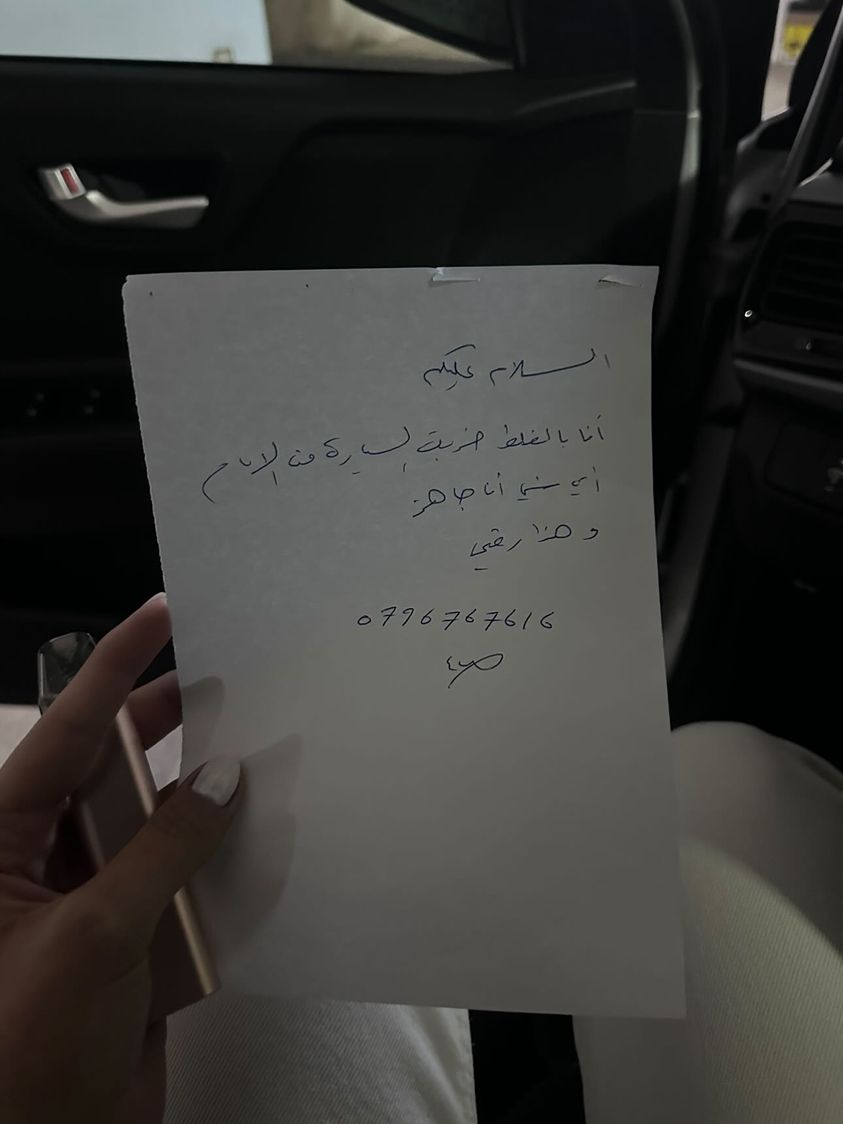 السلام عليكم
أنا بالغلط ضربت السيارة من الامام
أي شي أنا جاهز
و هذا رقمي
0796767616